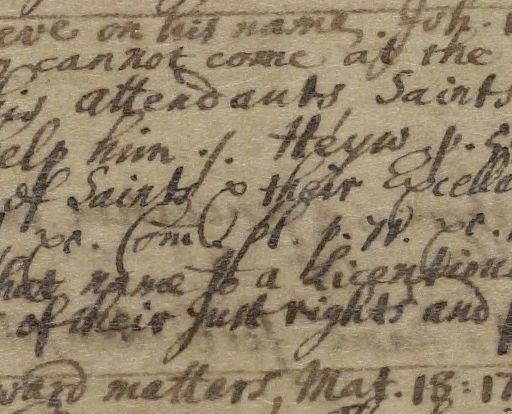 eve on his name. Joh.
cannot come at the
his attendants Saints
help him ./. Heyw. p.
of Saints & their Excelle
&c. Com. pl. p. &c.
that name to a Licentious
of their just rights and
ward matters, Mat. 18: 17